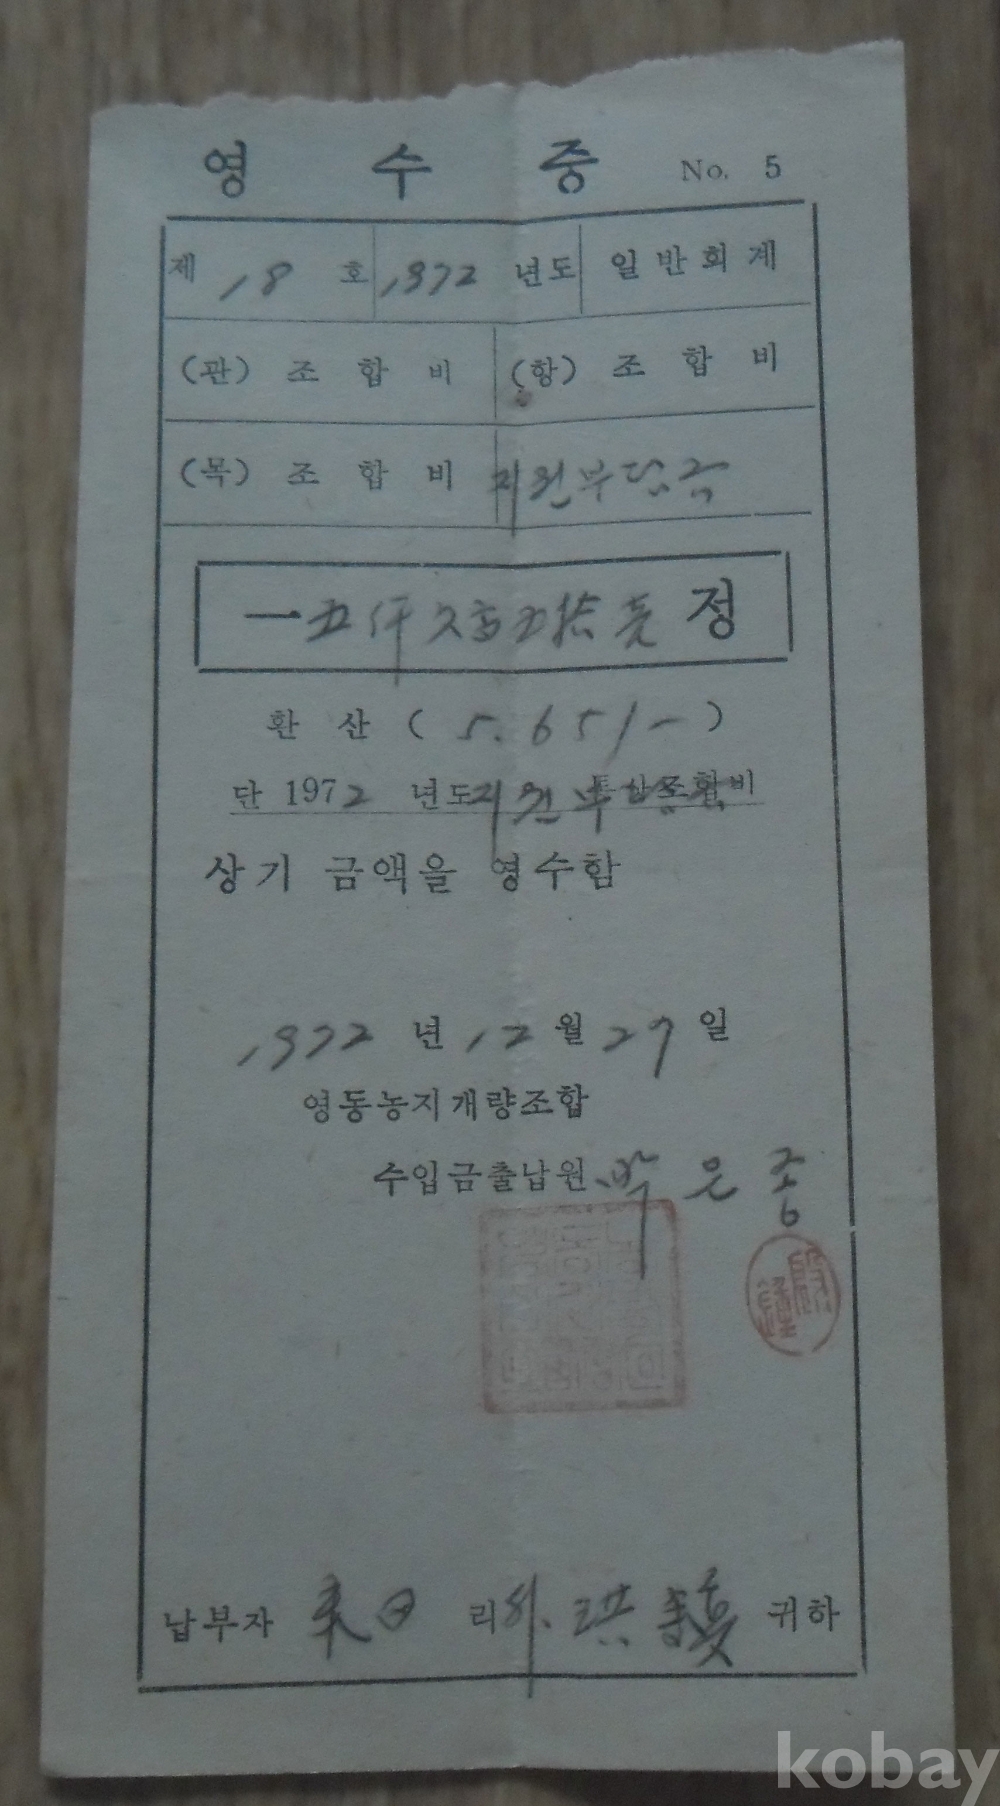 영 수 증 No. 5
제 18 호 1972 년도 일반회계
(관) 조 합 비 (항) 조 합 비
(목) 조 합 비 지원부담금
一五仟六百五拾壱 정
환 산 ( 5.651- )
단 1972 년도 지원부 조합비
상기 금액을 영수함
1972 년 12 월 27 일
영동농지개량조합
수입금출납원 박은종
납부자 리 外. 洪 귀하
kobay